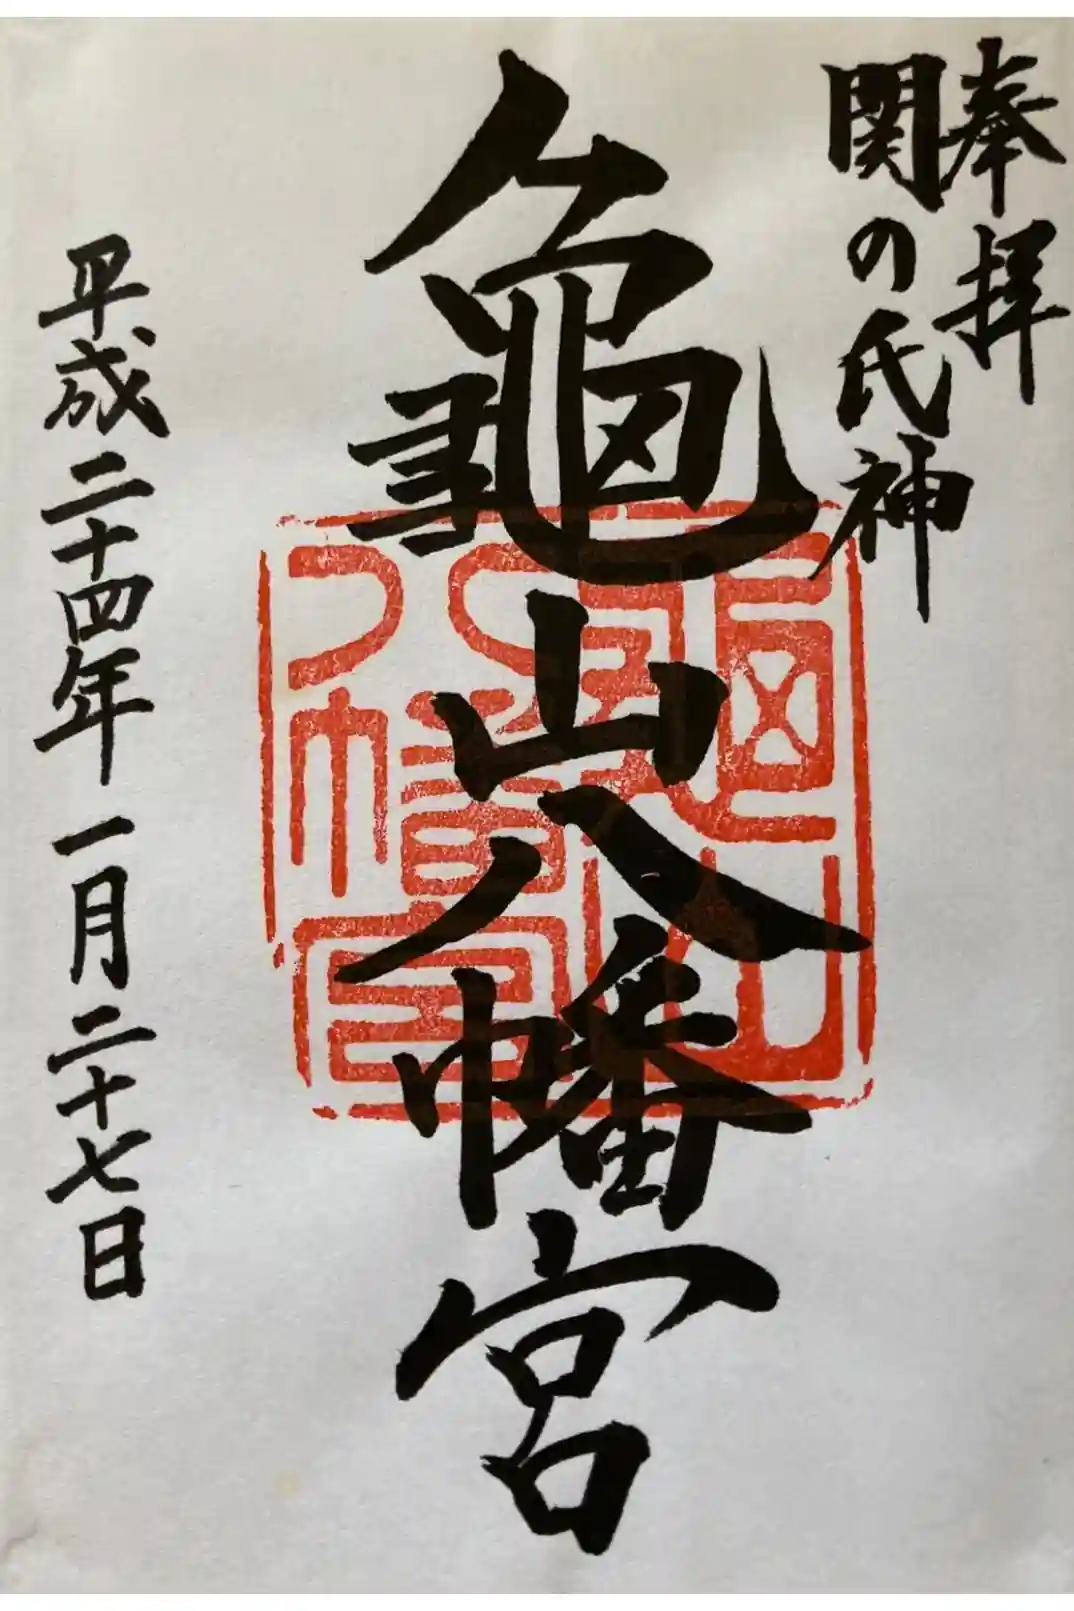 奉拝
関の氏神
龜山八幡宮
龜山
八幡宮
平成二十四年一月二十七日